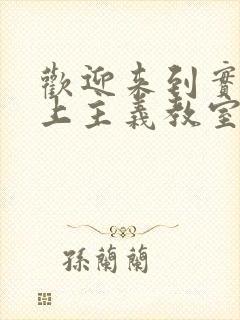 歡迎来到實
上主義教室
孫蘭蘭